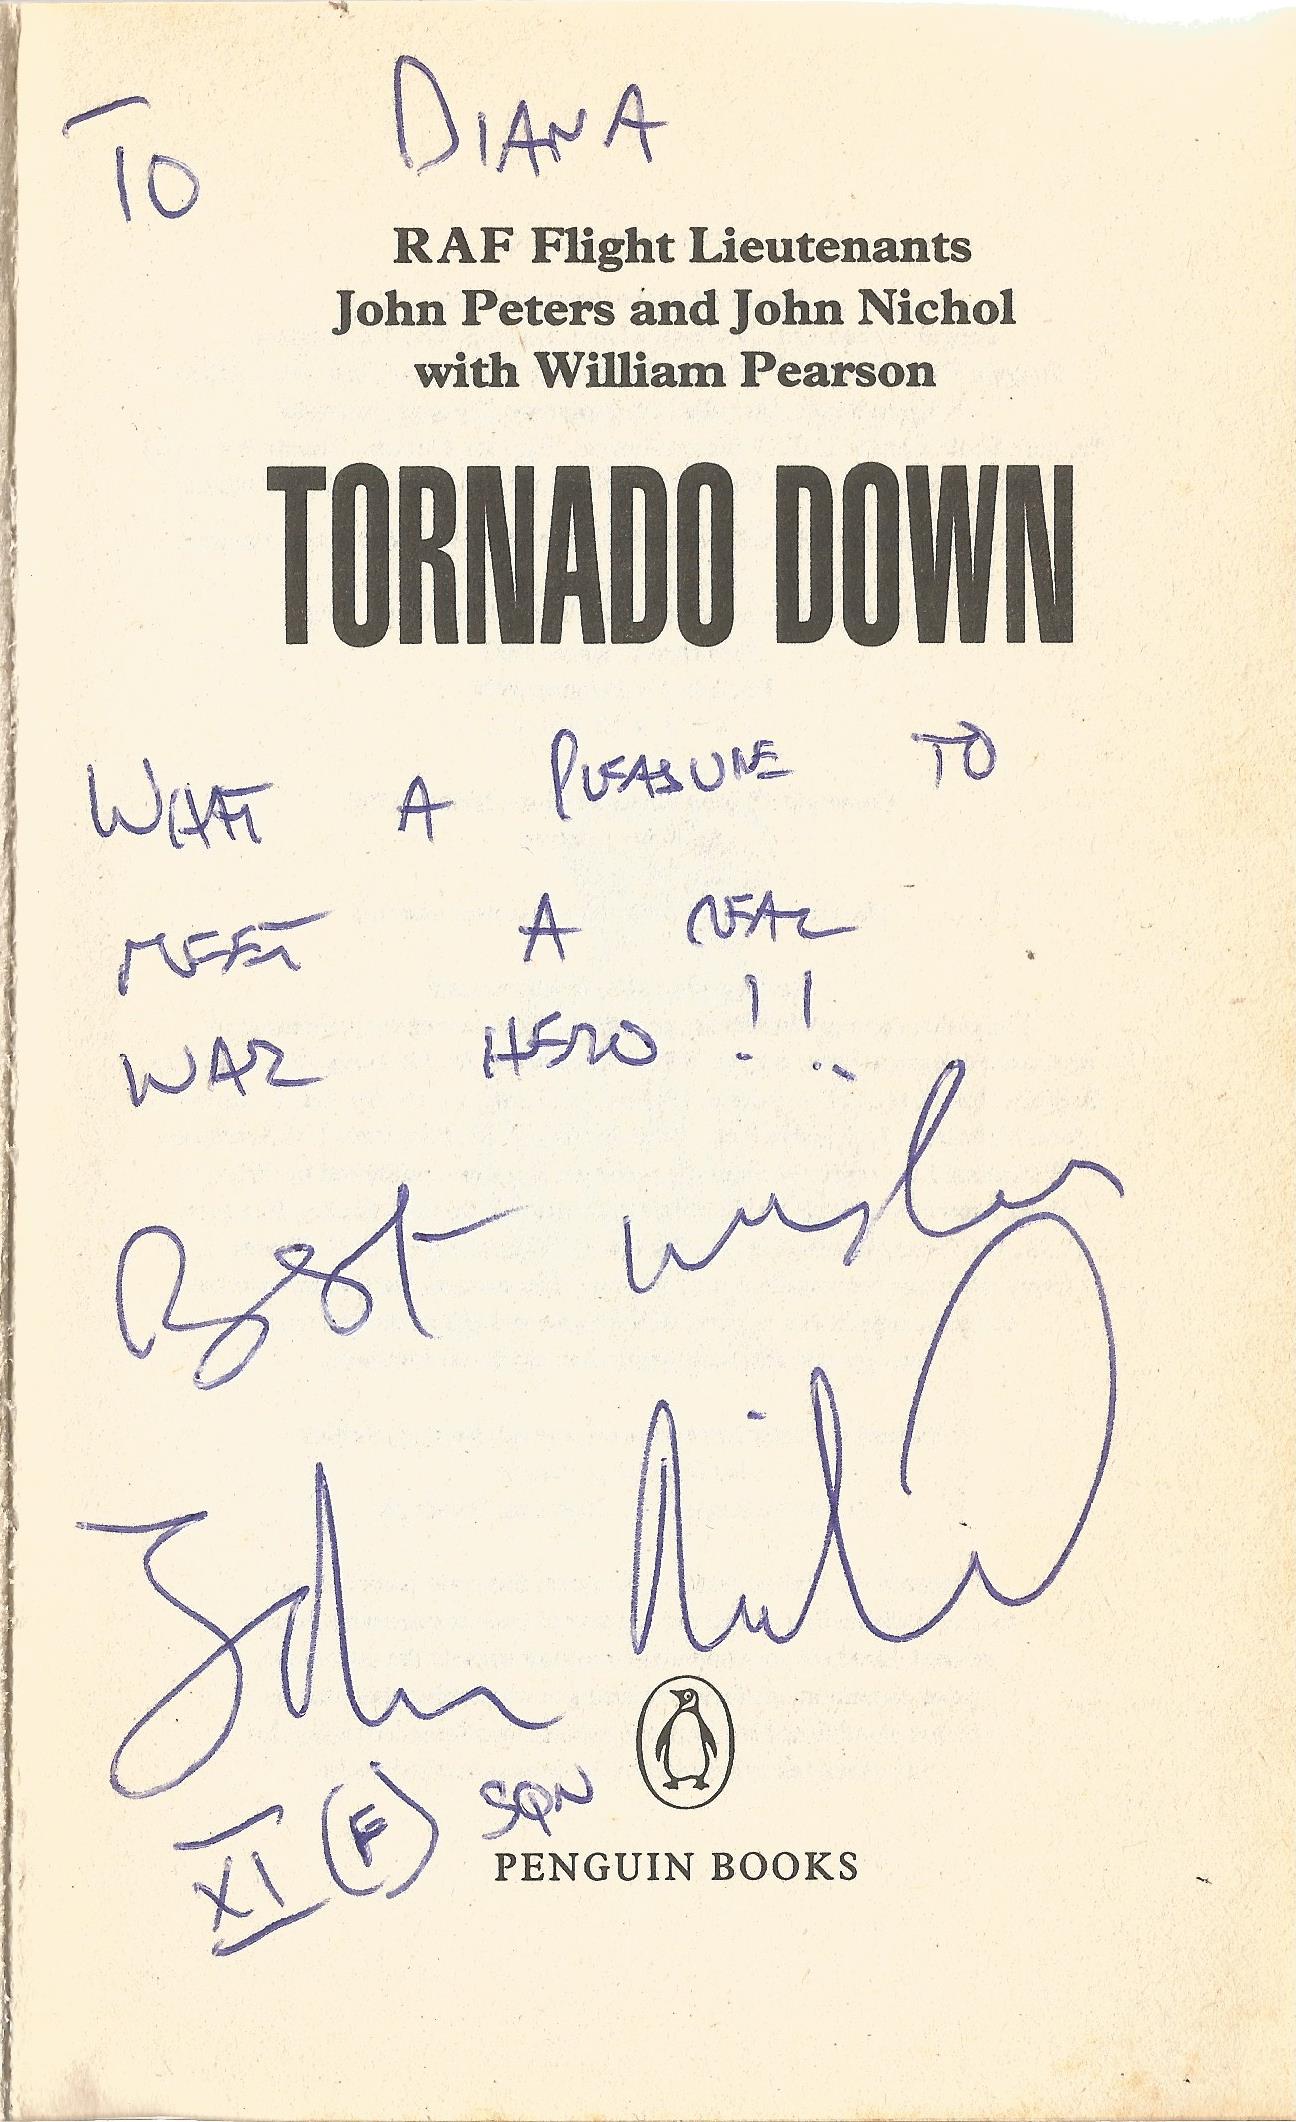 TO DIANA
RAF Flight Lieutenants
John Peters and John Nichol
with William Pearson
TORNADO DOWN
WHAT A PLEASURE TO
MEET A REAL
WAR HERO!!
Best wishes
John Nichol
XI (F) SQN
PENGUIN BOOKS